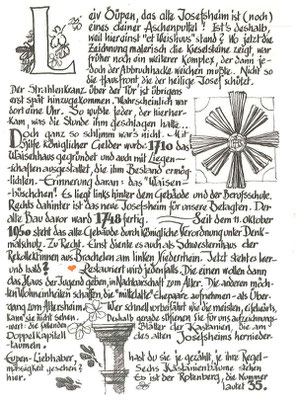 Leiv Öüpen, das alte Josefsheim ist (noch)
eines deiner Aschenputtel! Ist's deshalb,
weil hierans "et Weishüs" stand? Wo jetzt die
Zeichnung malerisch die Kieselsteine zeigt, war
früher noch ein weiterer Komplex, der dann je-
doch der Abbruchhacke weichen mußte. Nicht so
die Hausfront, die der heilige Josef schützt.
Der Strahlenkranz über der Tür ist übrigens
erst spät hinzugekommen. Wahrscheinlich war
dort eine Uhr. So wußte jeder, der hierher-
kam, was die Stunde ihm geschlagen hatte.
Doch ganz so schlimm war's nicht. Mit
Hilfe königlicher Gelder wurde 1710 das
Waisenhaus gegründet und auch mit Liegen-
schaften ausgestattet, die ihm Bestand ermög-
lichten. Erinnerung daran: das "Waisen-
höschen"! Es liegt links hinter dem Gebäude und der Berufsschule.
Rechts dahinter ist das neue Josefsheim für unsere Betagten. Der
alte Bau davor ward 1748 fertig. Seit dem 11. Oktober
1050 steht das alte Gebäude durch königliche Verordnung unter Denk-
malschutz. Zu Recht. Einst diente es auch als Schwesternhaus der
Rekollektinnen aus Bracheln am linken Niederrhein. Jetzt steht es leer
und bald? Restauriert wird jedenfalls. Die einen wollen dann
das Haus der Jugend geben, in Nachbarschaft zum Alter. Die anderen möch-
ten Wohneinheiten schaffen, die "mittelalte" Ehepaare aufnehmen - als Über-
gang zum Altersheim. Wer schnell vorbeifährt wie die meisten, eigenkarts,
kann sie nicht sehen. Deshalb gerade öffnen Sie für uns aufzeichnungs-
wert: die fallenden Blätter der Kastanien, die am
Doppelkapitell des alten Josefsheims hernieder-
taumeln.
Eupen-Liebhaber, hast du sie gezählt, je ihre Regel-
mässigkeit gesehen? Sechs Kastanienbäume stehen
hier. Es ist der Rotenberg, die Nummer
lautet 35.